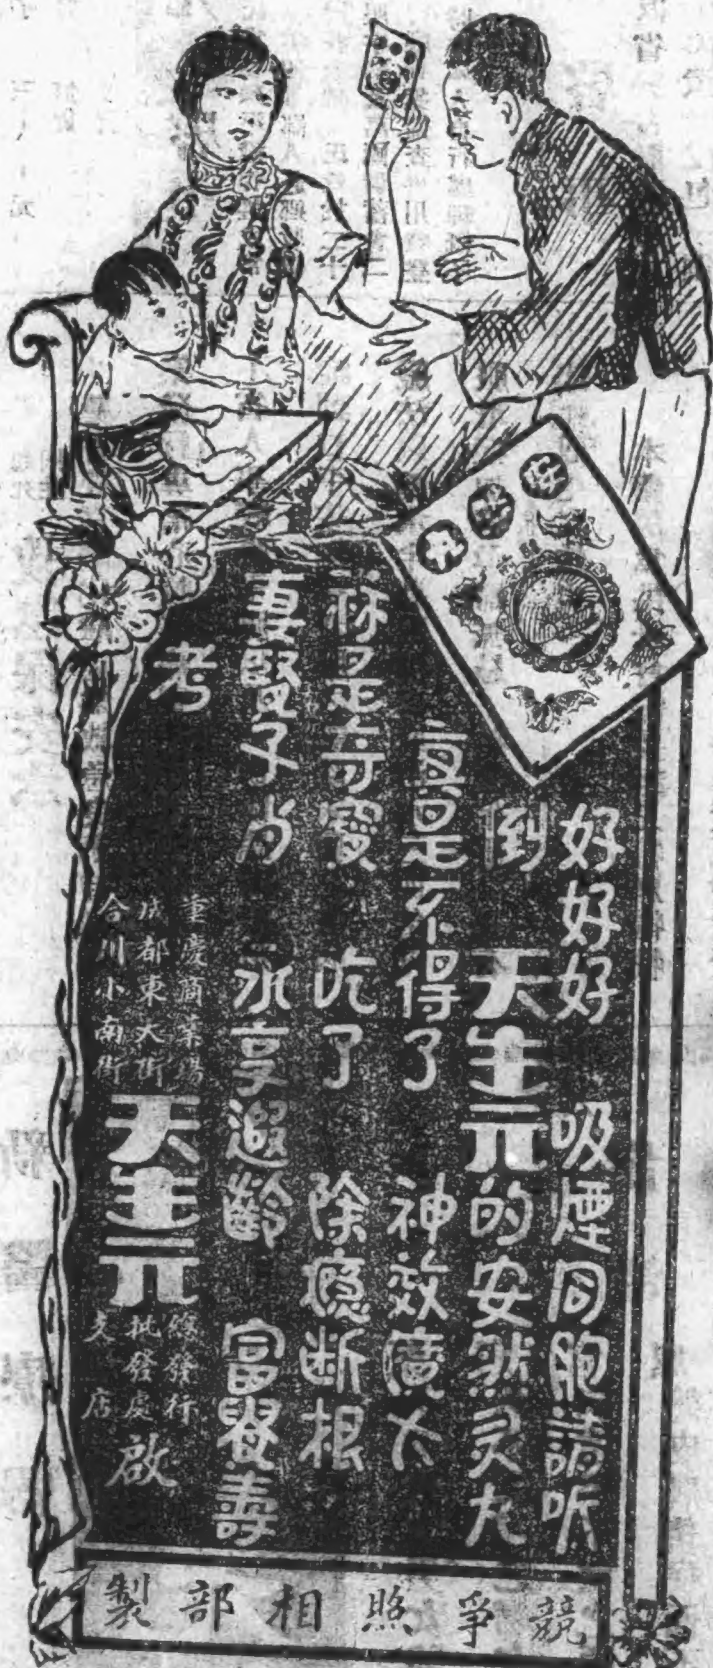 好好好 吸煙同胞請听
倒 天生元的安然灵丸
真是不得了 神效廣大
奇寶 吃了 除癮断根
妻賢子肖 永享遐齡 富貴壽
考
重慶商業場
成都東大街
合川小南街
天生元
總發行
批發處
支店
啟
競爭照相部製